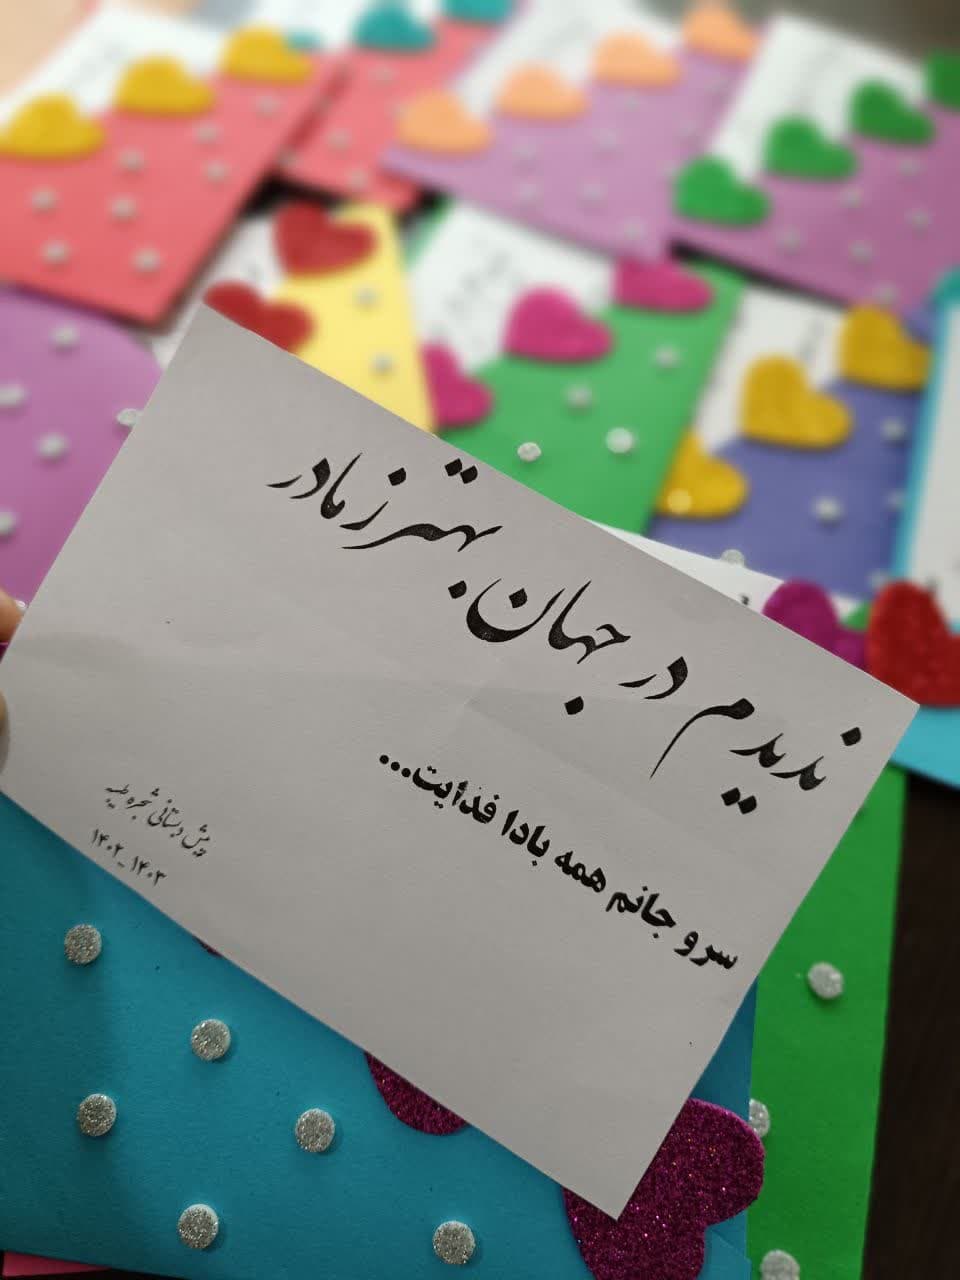 ندیدم در جهان بهتر ز مادر
سر و جانم همه بادا فدایت...
پیش دبستانی شجره طیبه
۱۴۰۲_۱۴۰۳